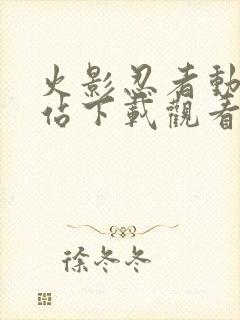 火影忍者動
佔下載觀看
徐冬冬